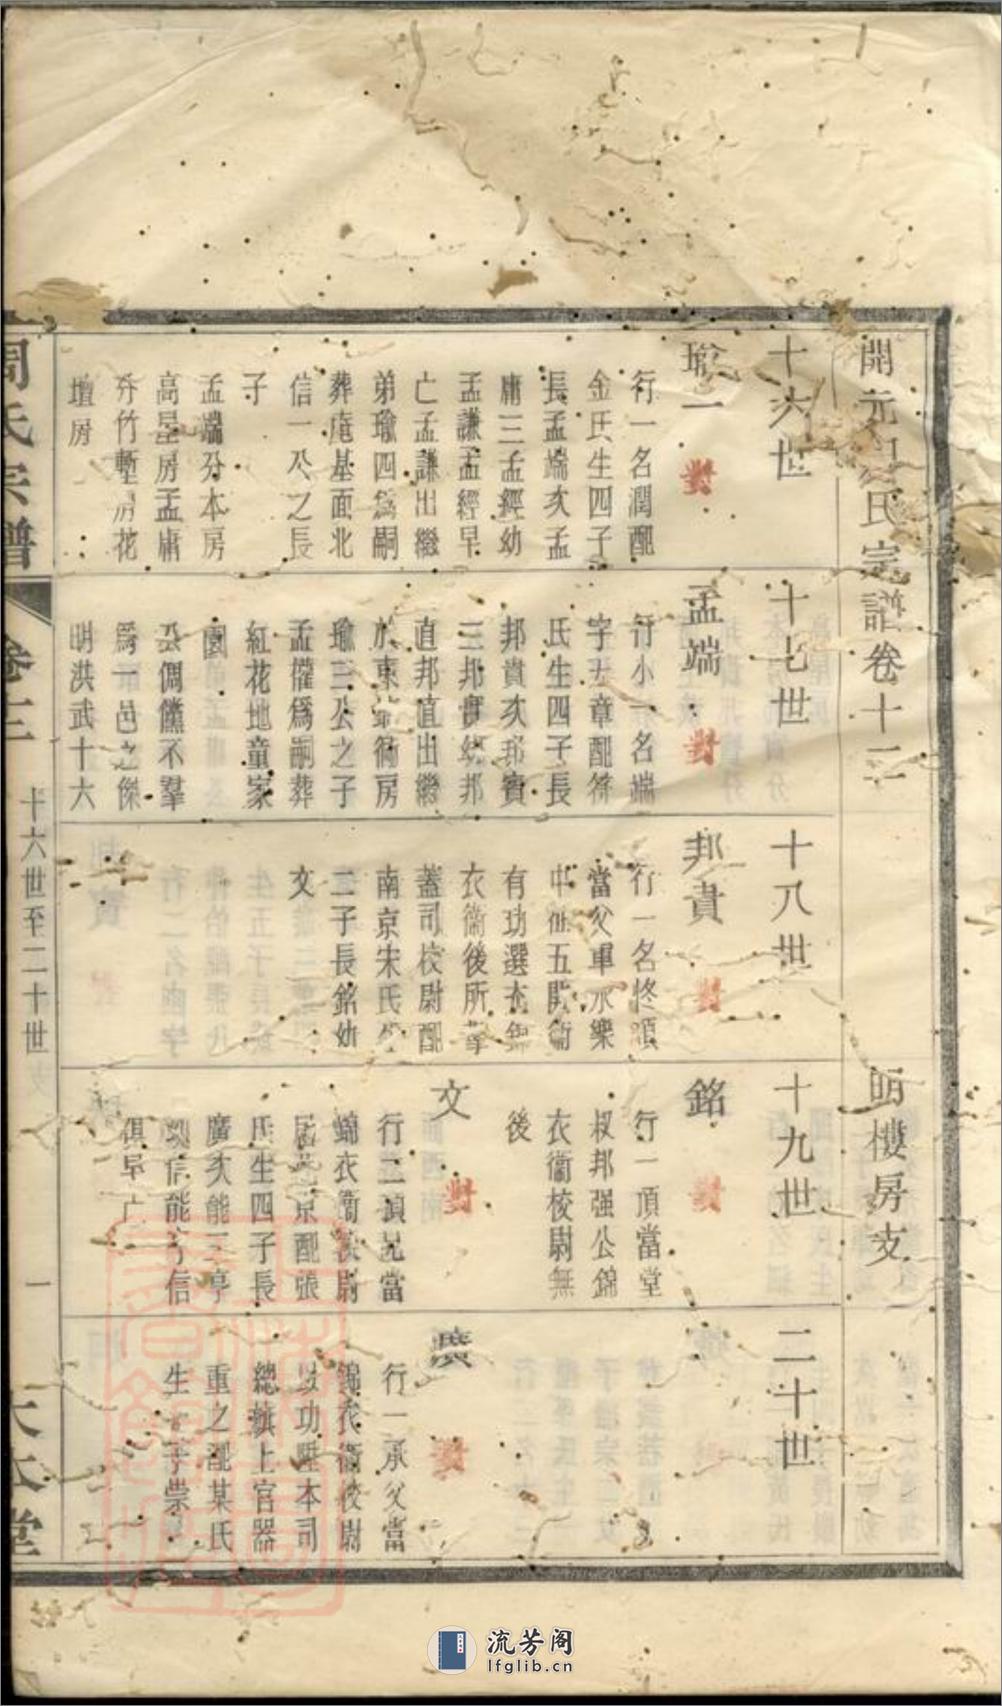 開元周氏宗譜卷十二
明樓房支
十六世
瑜一
行一名潤配
金氏生四子
長孟端次孟
庸三孟經幼
孟謙孟經早
亡孟謙出繼
弟瑜四爲嗣
葬庵基面北
信一公之長
子
孟端分本房
高壆房孟庸
分竹塹房花
壇房
十七世
孟端
行小一名端
字 章配符
氏生四子長
邦貴次邦賓
三邦實幼邦
直邦直出繼
於東 衕房
瑜三公之子
孟催爲嗣葬
紅花地童家
園
公倜儻不羣
爲一邑之傑
明洪武十六
十八世
邦貴
行一名柊頂
當父軍永樂
中 五開衛
有功選 錦
衣衞後所
蓋司校尉配
南京朱氏生
二子長銘幼
文
十九世
銘
行一頂當堂
叔邦强公錦
衣衞校尉無
後
文
行二頂兄當
錦衣衞校尉
居 京配張
氏生四子長
廣次能三亨
幼信能亨信
俱早亡
二十世
廣
行一承父當
錦衣衞校尉
以功陞本司
總旗上官器
重之配某氏
生 子崇
周氏宗譜
卷十二
十六世至二十世
一
大本堂
流芳阁
lfglib.cn